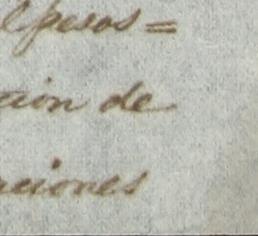 l pesos=
cion de
aciones